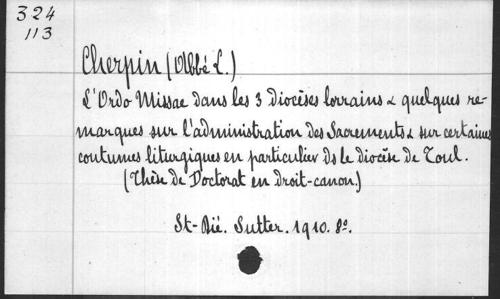 324
113
Cherpin (Abbé L.)
L'Ordo Missae dans les 3 diocèses lorrains & quelques re-
marques sur l'administration des Sacrements & sur certaines
coutumes liturgiques en particulier ds le diocèse de Toul.
(Thèse de Doctorat en droit-canon.)
St-Dié. Sutter. 1910. 8º.